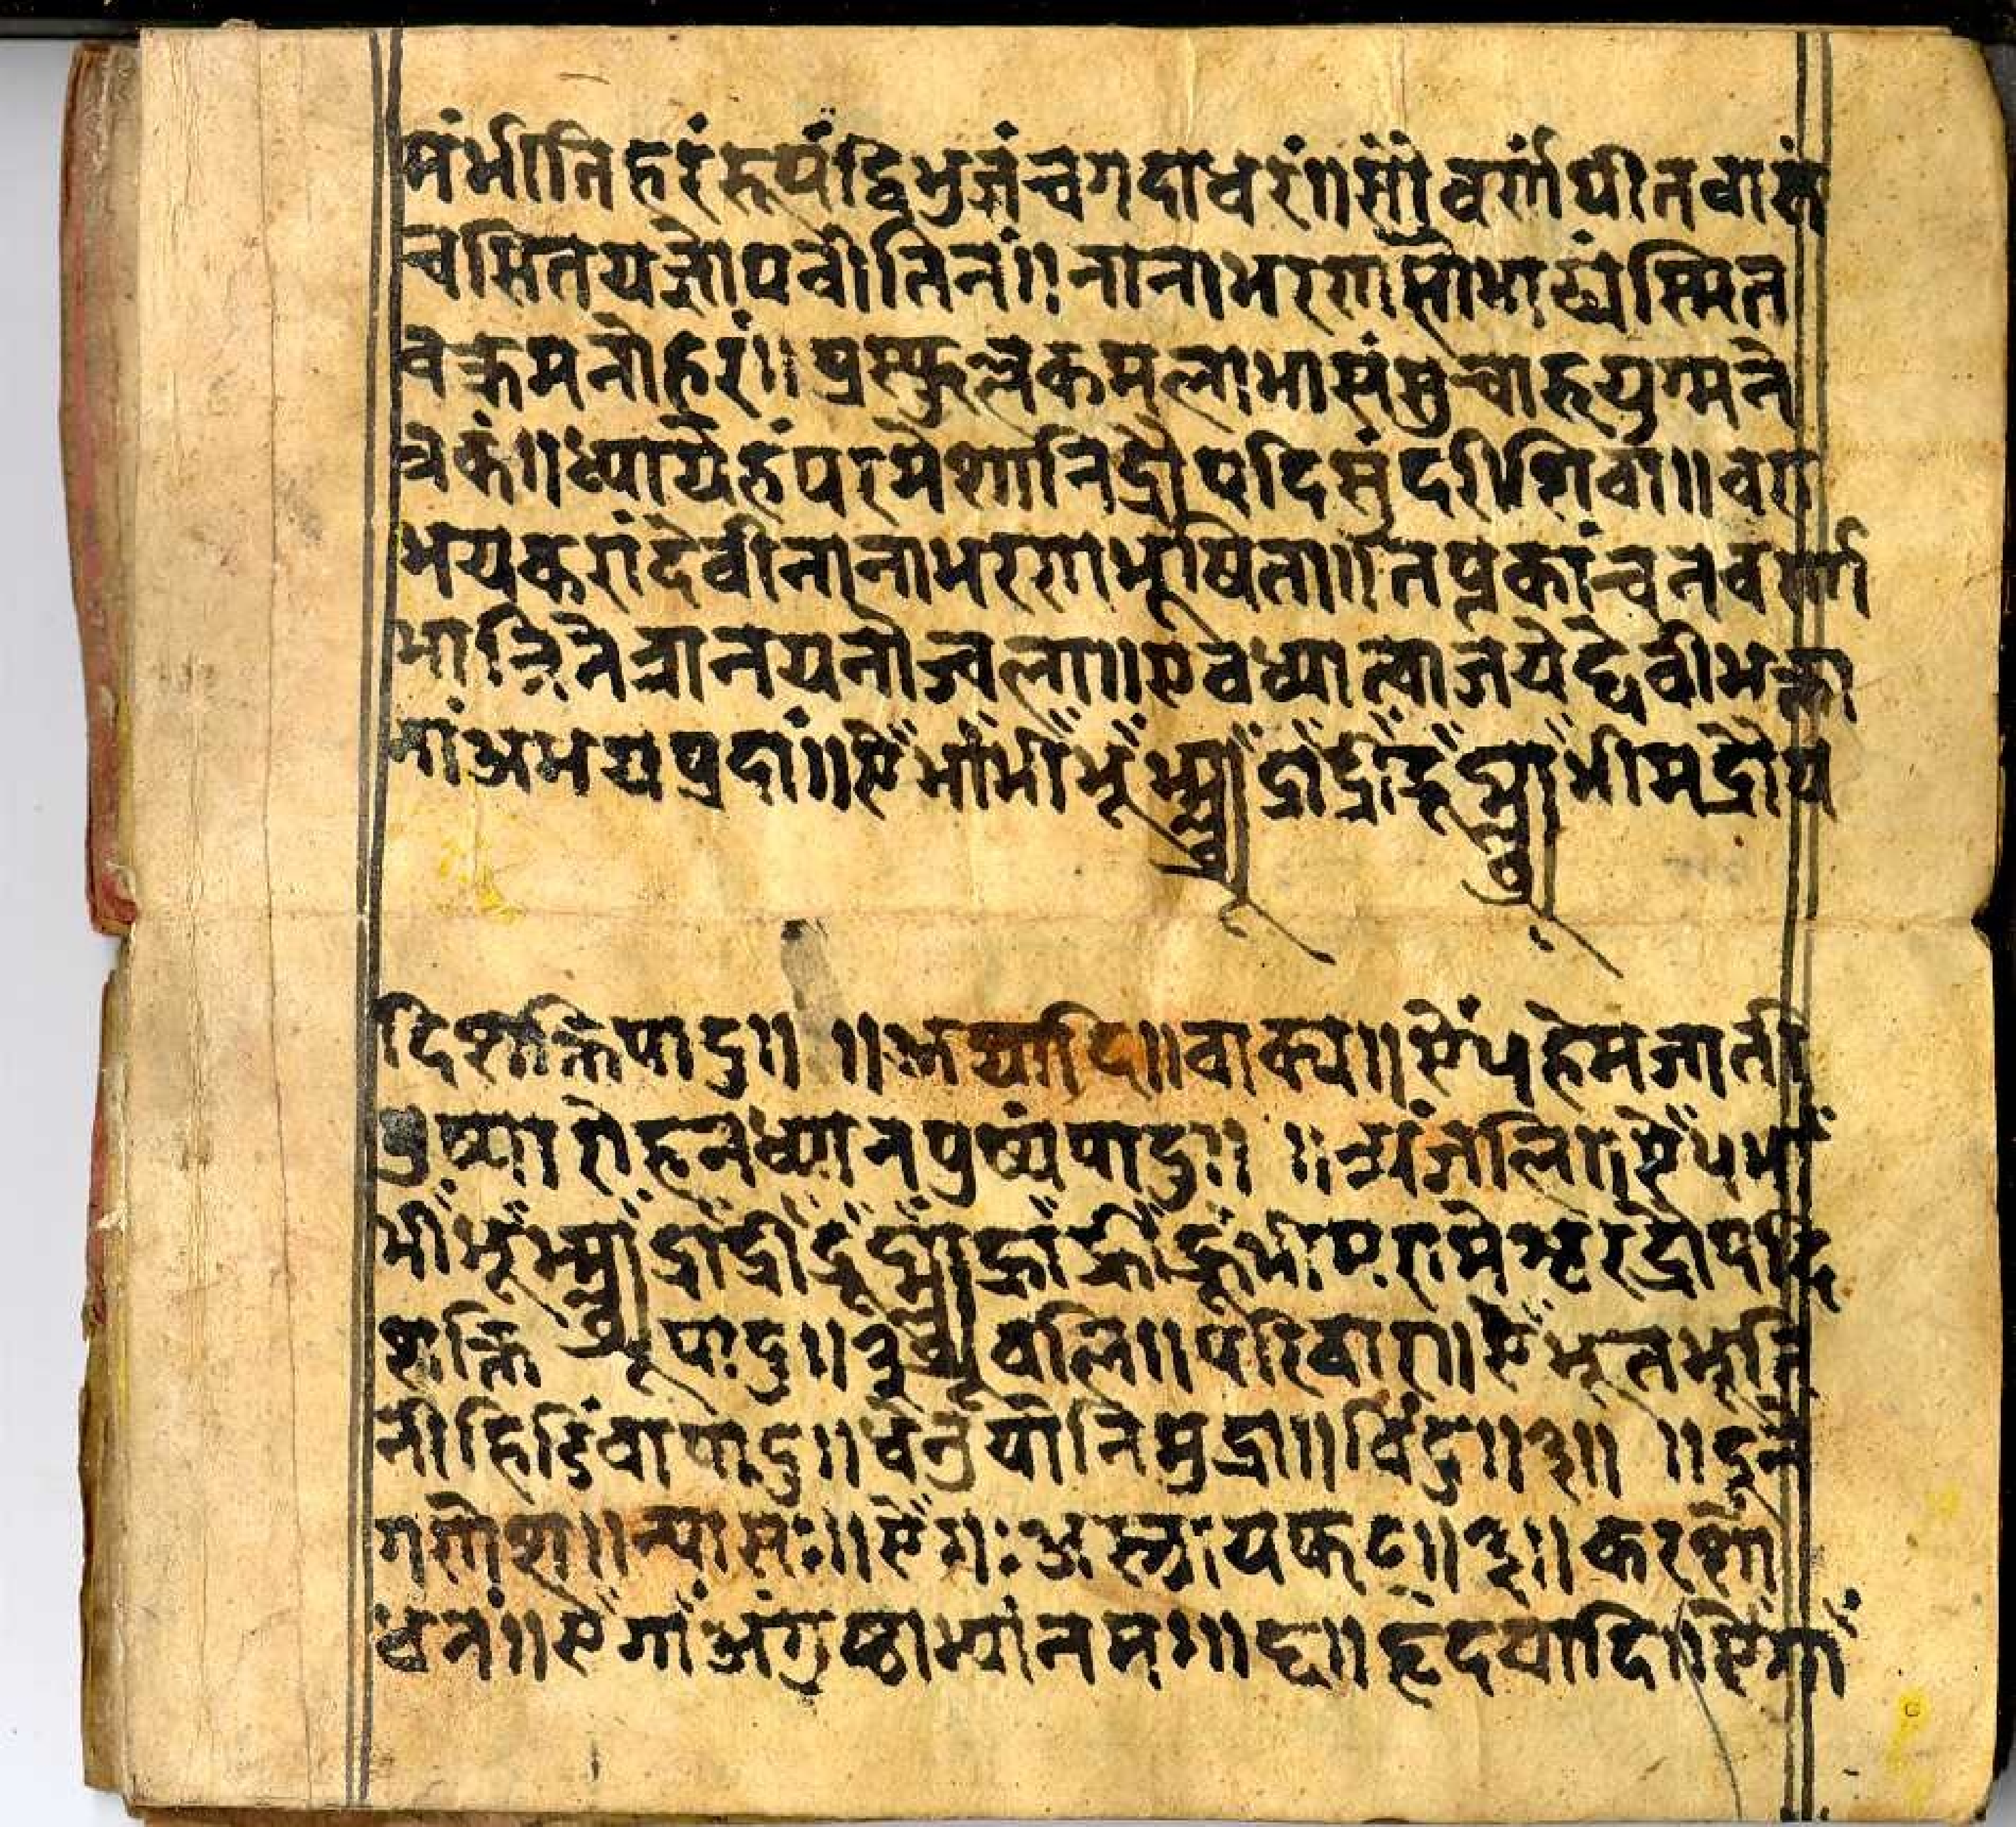 मंभीतिहरंरूपंद्विभुजंचगदाधरं॥सौवर्णपीतवासं
चसितयज्ञोपवीतिनं॥नानाभरणसोभाढ्यंस्मित
वक्त्रमनोहरं॥प्रस्फुल्लकमलाभासंमुचारुयुग्मने
त्रकं॥ध्यायेहंपरमेशानिद्रौपदिसुंदरीशिवा॥वरा
भयकरांदेवीनानाभरणभूषिता॥तप्तकांचनवर्णा
भात्रिनेत्रानयनोज्वला॥एवंध्यात्वाजयेद्देवीभक्ता
नांअभयप्रदां॥ऐँभाँभीँभूँ द्राँद्रीँद्रूँ भीमद्रौप
दिशक्तिपादु॥ ॥अद्यादि॥वाक्य॥ऐं५हेमजाती
पुष्पारोहनंध्यानपुष्पंपादु॥ ॥त्र्यंजलि॥ऐँ५भाँ
भीँभूँ द्राँद्रीँद्रूँ भीम द्रौपदि
शक्ति पादु॥३॥वलि॥परिवारा॥ऐँभूतभूति
नीहिडिंवापादु॥धेनुयोनिमुद्रा॥विंदु॥३॥ ॥दुने
गणेश॥न्यासः॥ऐँगःअस्त्रायफट्॥३॥करशो
धनं॥ऐँगाँअंगुष्ठाभ्यांनमः॥६॥हृदयादि॥ऐँगाँ